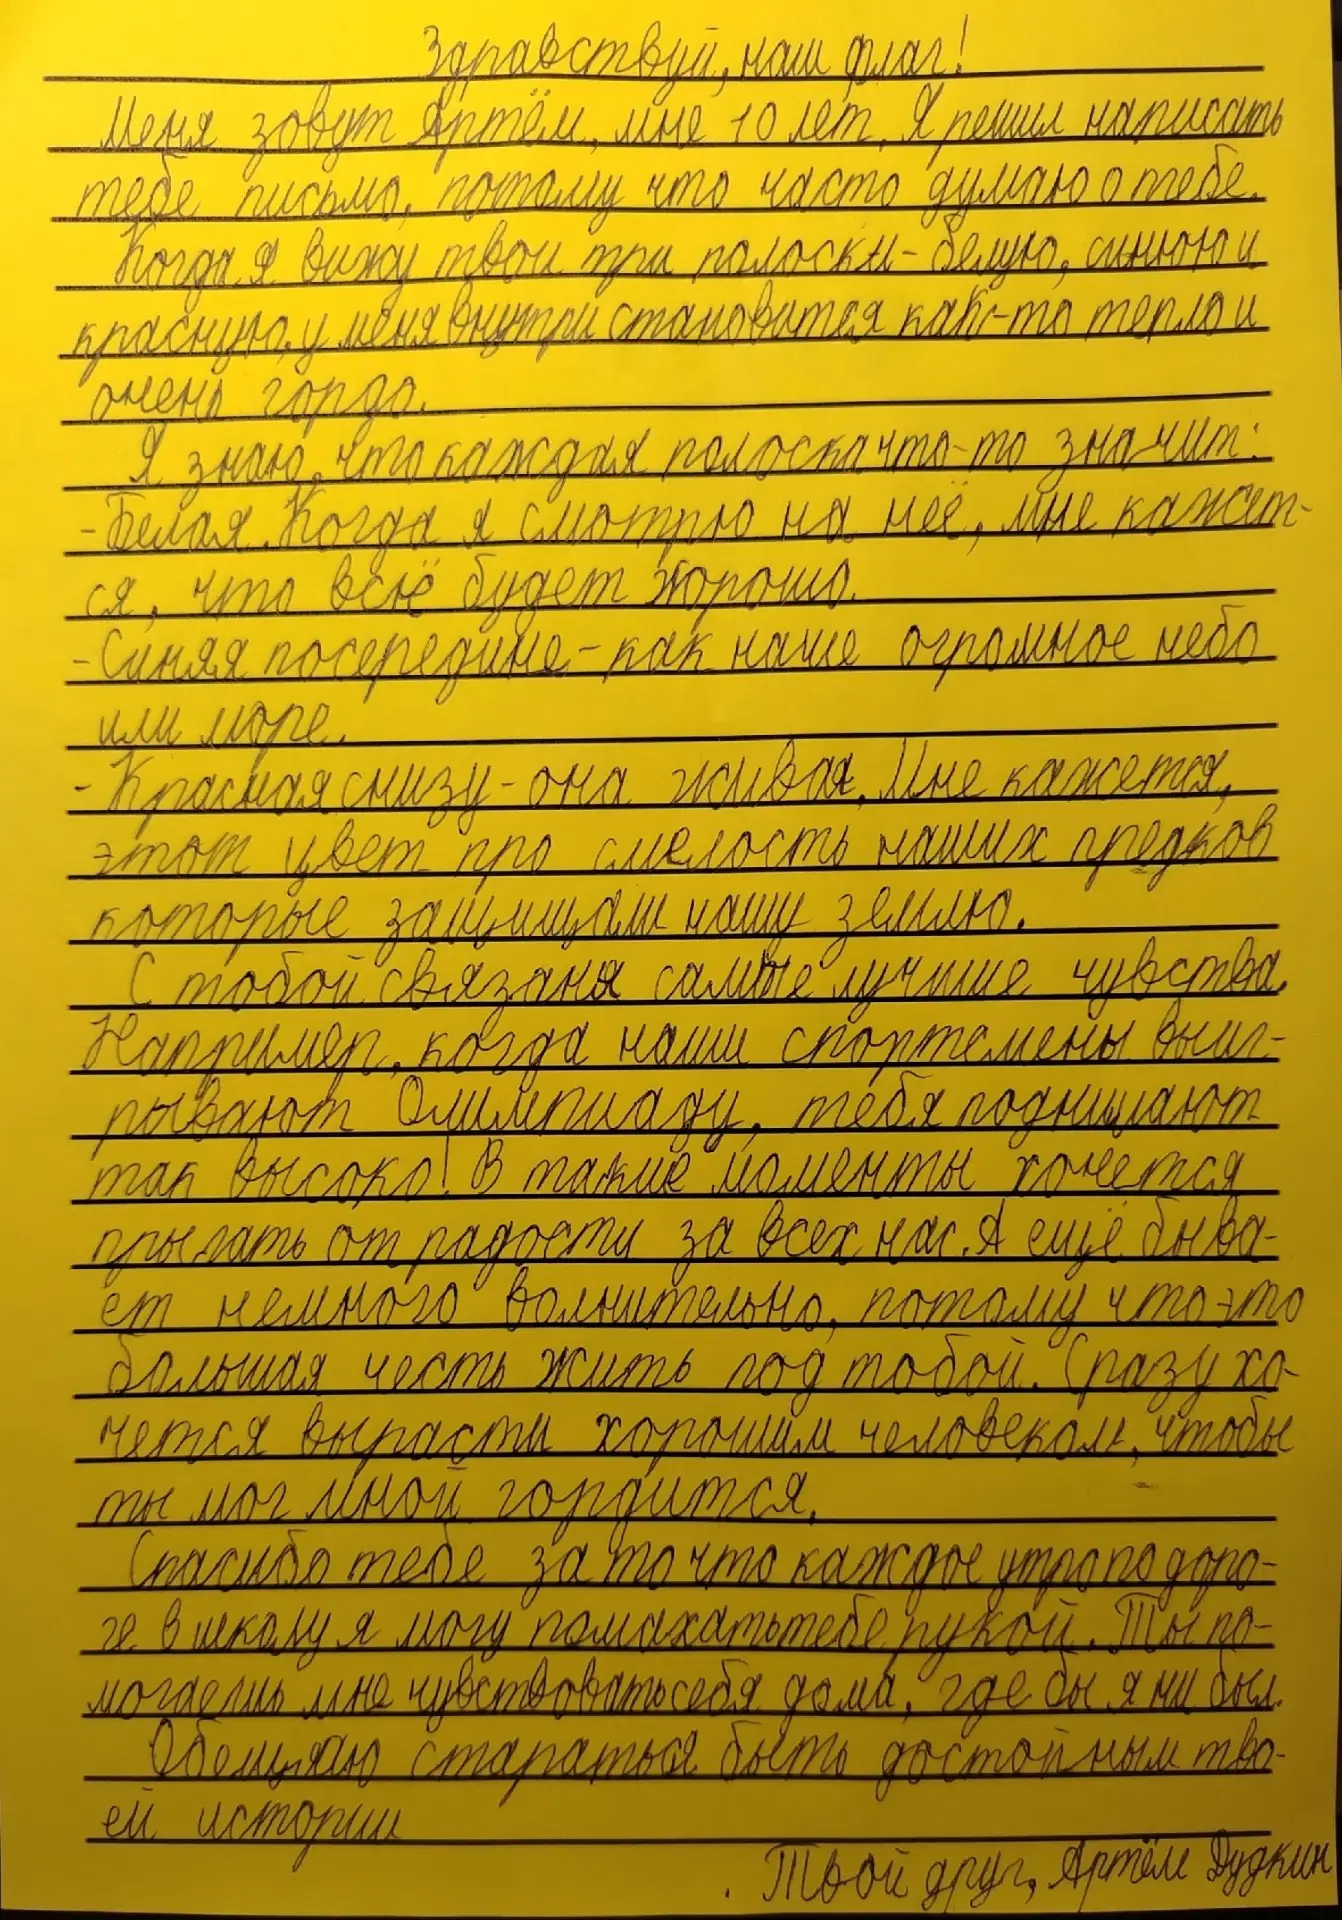 Здравствуй, наш флаг!
Меня зовут Артём, мне 10 лет. Я решил написать
тебе письмо, потому что часто думаю о тебе.
Когда я вижу твои три полоски - белую, синюю и
красную, у меня внутри становится как-то тепло и
очень гордо.
Я знаю, что каждая полоска что-то значит:
- Белая. Когда я смотрю на неё, мне кажет-
ся, что всё будет хорошо.
- Синяя посередине - как наше огромное небо
или море.
- Красная снизу - она живая. Мне кажется,
этот цвет про смелость наших предков
которые защищали нашу землю.
С тобой связаня самые лучшие чувства.
Например, когда наши спортсмены выиг-
рывают Олимпиаду, тебя поднимают
так высоко! В такие моменты хочется
прыгать от радости за всех нас. А ещё быва-
ет немного волнительно, потому что это
большая честь жить под тобой. Сразу хо-
чется вырасти хорошим человеком, чтобы
ты мог мной гордится.
Спасибо тебе за то что каждое утро по доро-
ге в школу я могу помахать тебе рукой. Ты по-
могаешь мне чувствовать себя дома, где бы я ни был.
Обещаю стараться быть достойным тво-
ей истории
Твой друг, Артём Дудкин